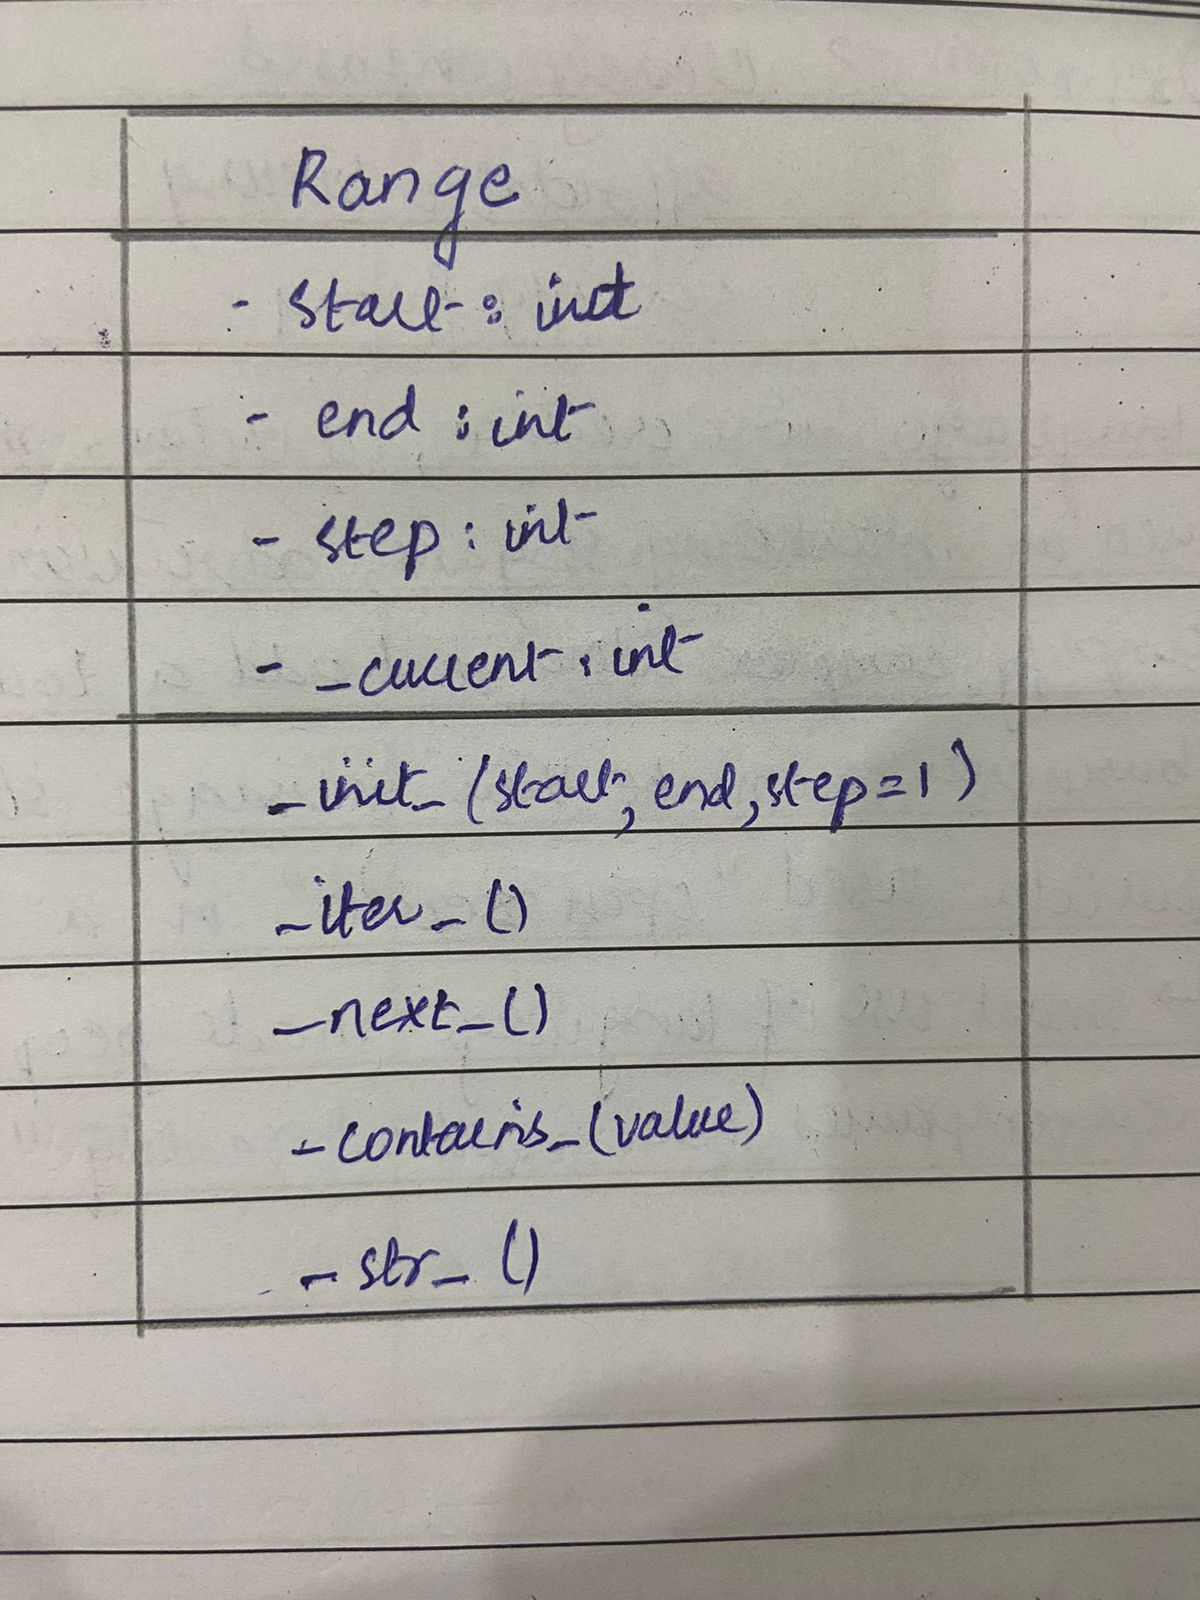 Range
- start : int
- end : int
- step : int
- _current : int
_init_(start, end, step=1)
_iter_()
_next_()
_contains_(value)
_str_()